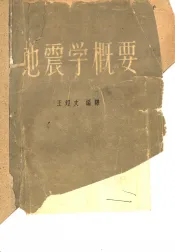 地震学概要
王耀文 编辑